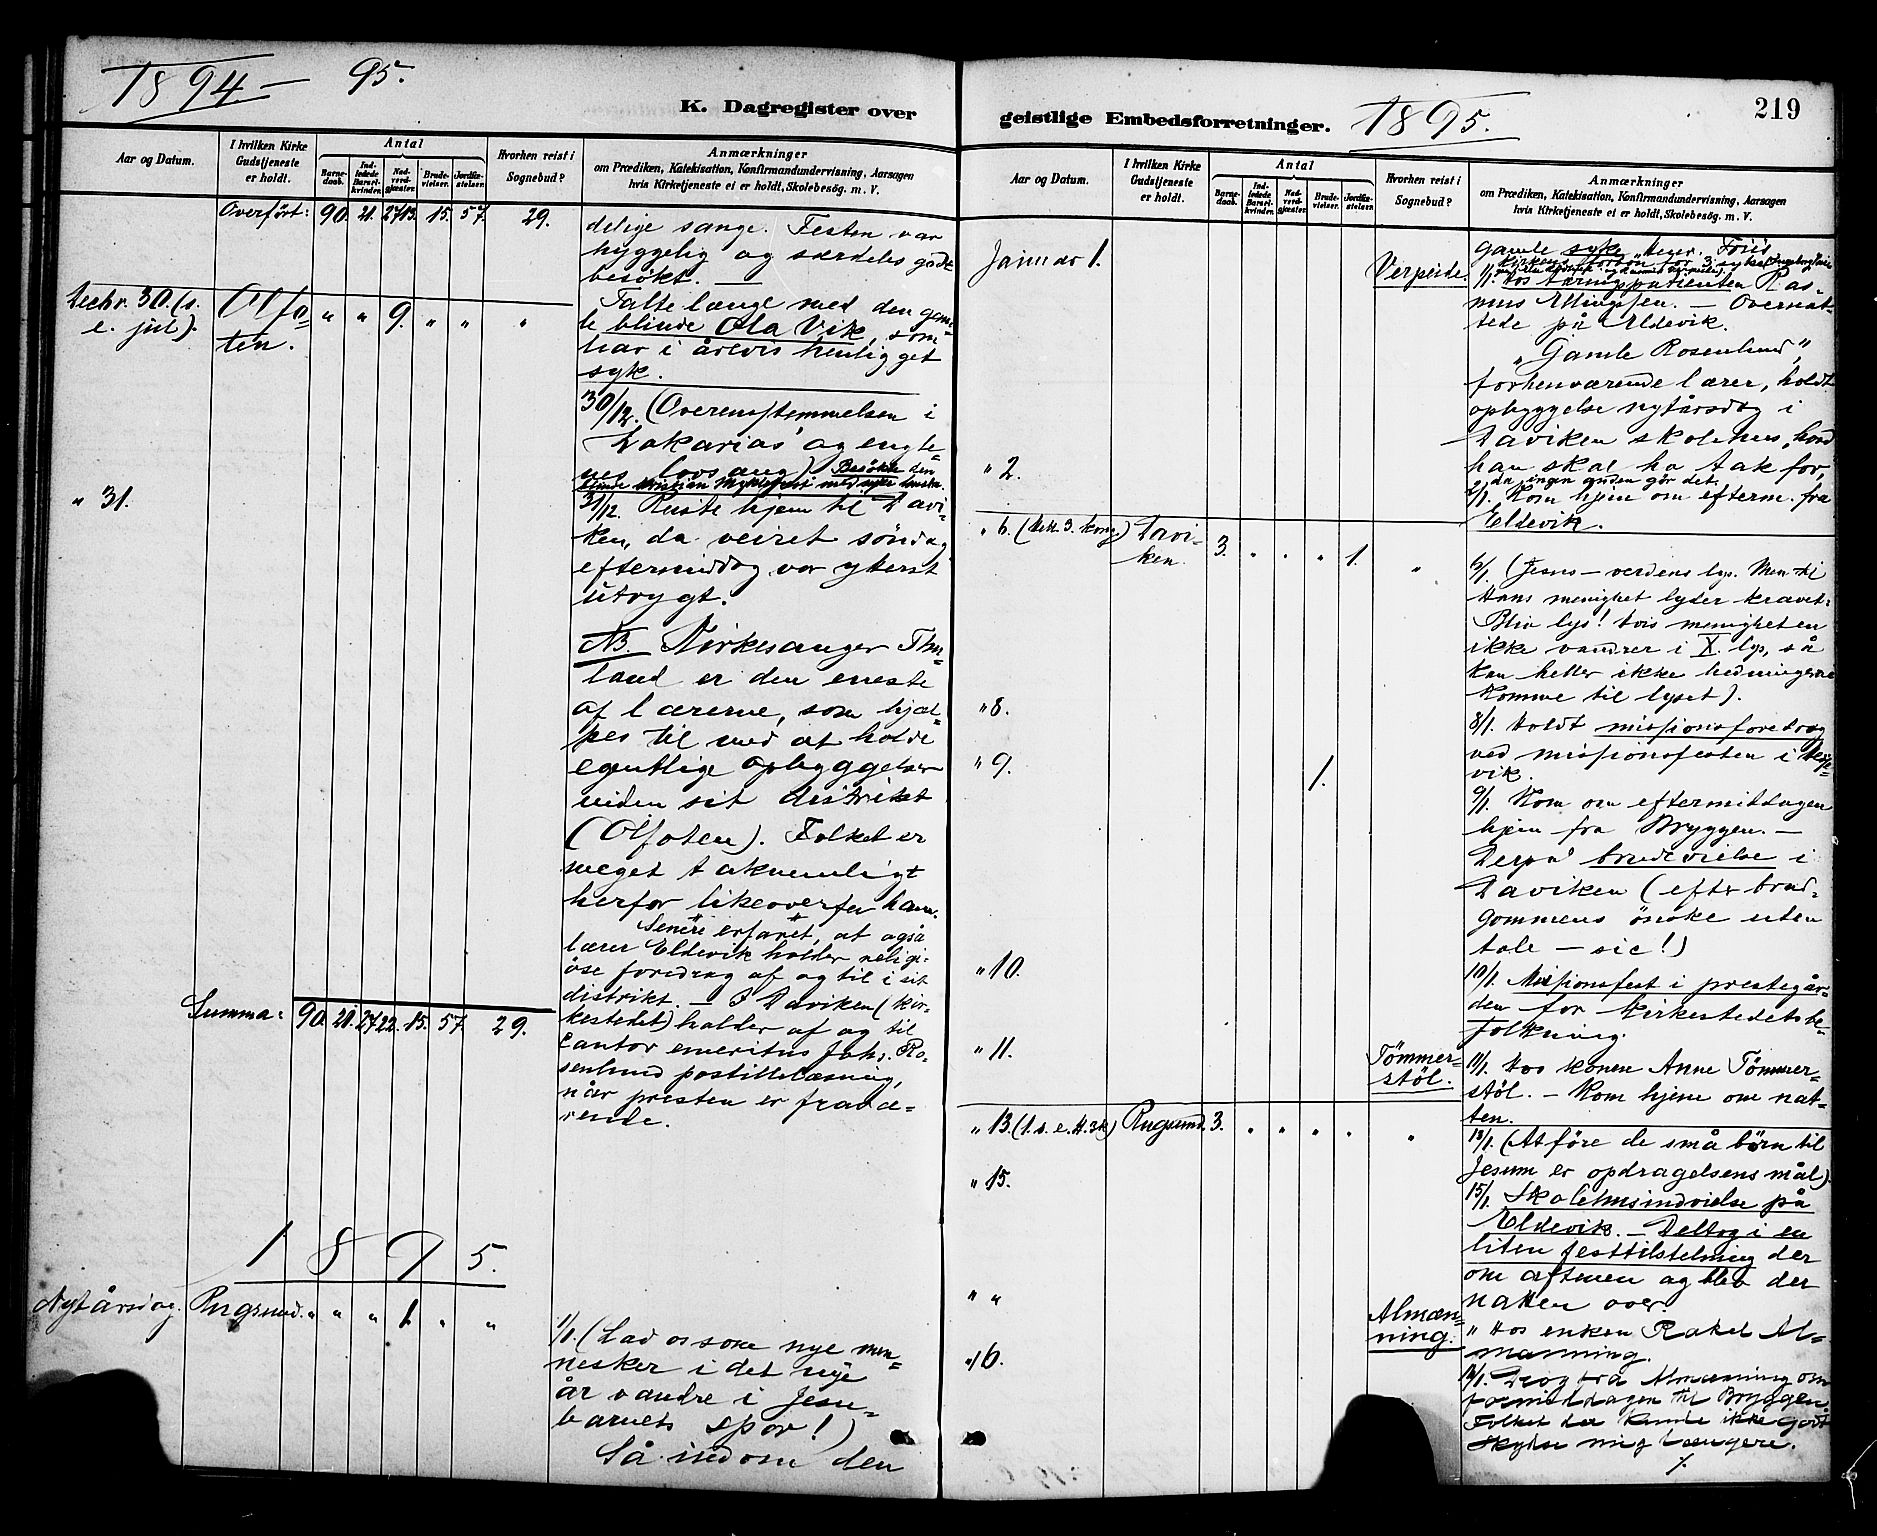 1894 – 95.
K. Dagregister over
Aar og Datum.
I hvilken Kirke Gudstjeneste er holdt.
Antal
Barnedaab.
Indledede Barselkvinder.
Nadverdgjæster.
Brudevielser.
Jordfæstelser.
Hvorhen reist i Sognebud?
Anmærkninger
om Prædiken, Katekisation, Konfirmandundervisning, Aarsagen
hvis Kirketjeneste ei er holdt, Skolebesög. m. V.
Overført: 90. 21. 2713. 15. 57. 29.
delige sange. Festen var
hyggelig og særdeles godt
besökt. —
Decbr. 30. (s. e. jul). Ólfoten. " " 9. " " "
Talte længe med den gam-
le blinde Ola Vik, som
har i årevis henligget
syk.
30/12. (Overensstemmelsen i
Zakarias' og engle-
nes lovsang). Besökte den
blinde Kristian Myklebust med syke
" 31.
31/12. Reiste hjem til Davi-
ken, da veiret söndag
eftermiddag var yterst
utrygt.
NB. Kirkesanger
land er den eneste
af lærerne, som hjæl-
pes til med at holde
egentlige opbyggelser
inden sit distrikt
(Ólfoten). Folket er
meget taknemligt
herfor likeoverfor ham.
Senere erfaret, at også
lærer Eldevik holder religi-
öse foredrag af og til i sit
distrikt. — I Daviken (kir-
kestedet) holder af og til
cantor emeritus Johs. Ro-
senlund postillelæsning,
når presten er fravæ-
rende.
Summa: 90. 21. 2722. 15. 57. 29.
1895.
Nytårsdag. Rugsund. " " " 1. " "
1/1. (Lad os som nye men-
nesker i det nye
år vandre i Jesu-
barnets spor!)
Så ind om den
geistlige Embedsforretninger. 1895.
219
Aar og Datum.
I hvilken Kirke Gudstjeneste er holdt.
Antal
Barnedaab.
Indledede Barselkvinder.
Nadverdgjæster.
Brudevielser.
Jordfæstelser.
Hvorhen reist i Sognebud?
Anmærkninger
om Prædiken, Katekisation, Konfirmandundervisning, Aarsagen
hvis Kirketjeneste ei er holdt, Skolebesög. m. V.
Januar 1.
Verpeide.
gamle syke
Kirkens forbön for 3 syke
1/1. Hos tæringpatienten Ras-
mus Ellingsen. — Overnat-
tede på Eldevik.
"Gamle Rosenlund",
forhenværende lærer, holdt
opbyggelse nytårsdag i
Daviken skolehus, hvad
han skal ha tak for,
da ingen anden gör det.
" 2.
2/1. Kom hjem om efterm. fra
Eldevik.
" 6. (Hell. 3. kong.) Daviken. 3. " " " 1. "
6/1. (Jesus – verdens lys. Men til
Hans menighet lyder kravet:
Bliv lys! Hvis menigheten
ikke vandrer i X. lys, så
kan heller ikke hedningerne
komme til lyset).
" 8.
8/1. Holdt missionsforedrag
ved missionsfesten i
vik.
" 9. 1.
9/1. Kom om eftermiddagen
hjem fra Bryggen. —
Derpå brudevielse i
Daviken (efter brud-
gommens önske uten
tale – sic!)
" 10.
10/1. Missionsfest i prestegår-
den for kirkestedets be-
folkning.
" 11.
Tömmer-
stöl.
11/1. Hos konen Anne Tömmer-
stöl. – Kom hjem om nat-
ten.
" 13. (1. s. e. H. 3 k.) Rugsund. 3. " " " " "
13/1. (At före de små börn til
Jesum er opdragelsens mål).
" 15.
15/1. Skolehusindvielse på
Eldevik. – Deltog i en
liten festtilstelning der
om aftenen og blev der
natten over.
" "
Almæn-
ning.
" Hos enken Rakel Al-
mænning.
" 16.
16/1. Drog fra Almænning om
formiddagen til Bryggen.
Folket der kunde ikke godt
skydse mig længere.